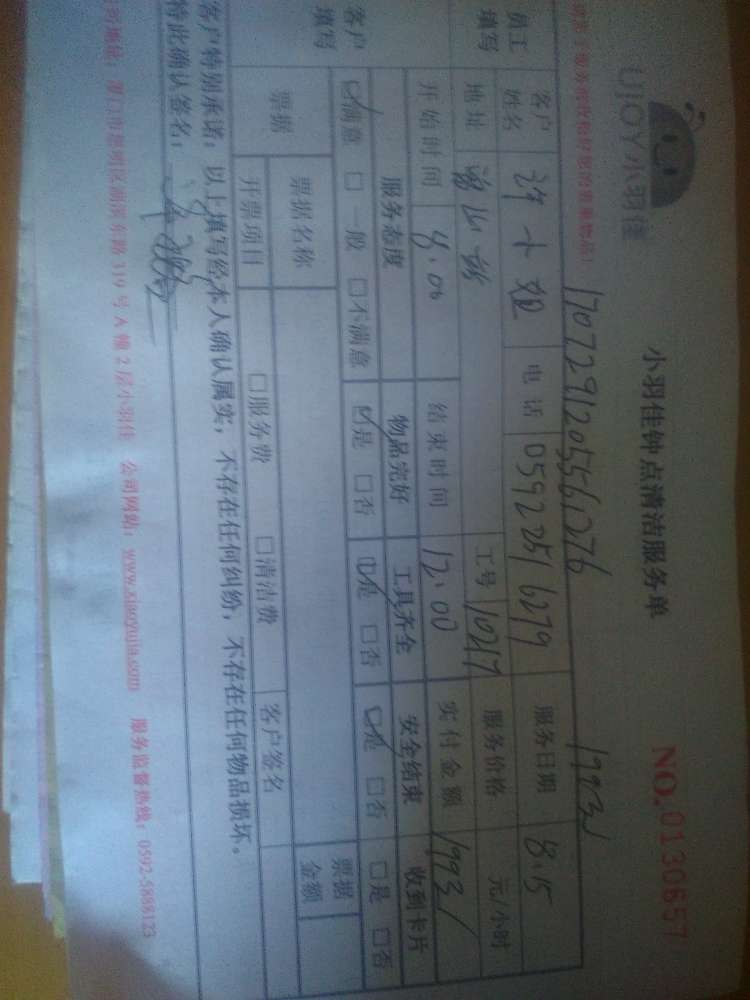 UJOY小羽佳
小羽佳钟点清洁服务单
NO.0130657
1707291205561276
员工填写
客户姓名 许小姐 电话 0592 2516279 服务日期 8.15
地址 工号 10217 服务价格 元/小时
开始时间 8.00 结束时间 12.00 实付金额
客户填写
服务态度 物品完好 工具齐全 安全结束 收到卡片
☑满意 □一般 □不满意 ☑是 □否 ☑是 □否 ☑是 □否 □是 □否
票据 票据名称 票据金额
开票项目 □服务费 □清洁费 客户签名
客户特别承诺：以上填写经本人确认属实，不存在任何纠纷，不存在任何物品损坏。
特此确认签名：
319号A幢2层小羽佳 公司网站：www.xiaoyujia.com 服务监督热线：0592-5888123